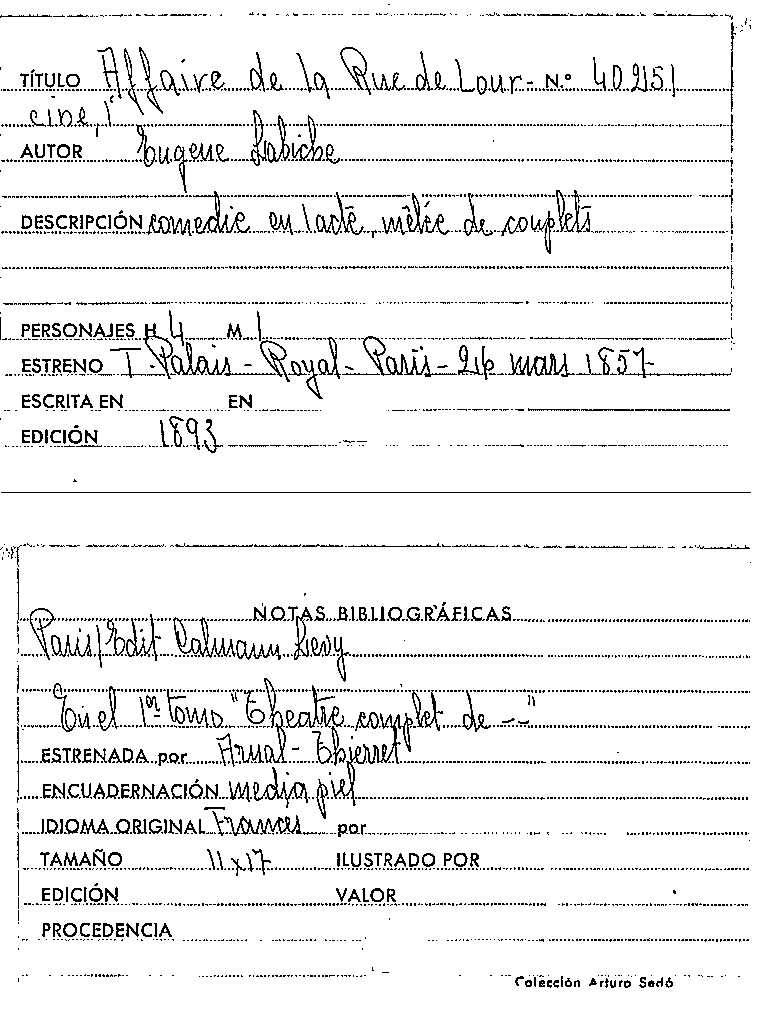 TÍTULO Affaire de la Rue de Lour- N.º 40251
cine, 1
AUTOR Eugene Labiche
DESCRIPCIÓN comedie en 1 acte, mêlée de couplets
PERSONAJES H 4 M 1
ESTRENO T. Palais - Royal - Paris - 26 mars 1857-
ESCRITA EN EN
EDICIÓN 1893
NOTAS BIBLIOGRÁFICAS
Paris/Edit Calmann Levy
En el 1er tomo "Theatre complet de --"
ESTRENADA por Arnal - Thierret
ENCUADERNACIÓN media piel
IDIOMA ORIGINAL Frances por
TAMAÑO 11x17 ILUSTRADO POR
EDICIÓN VALOR
PROCEDENCIA
Colección Arturo Sedó